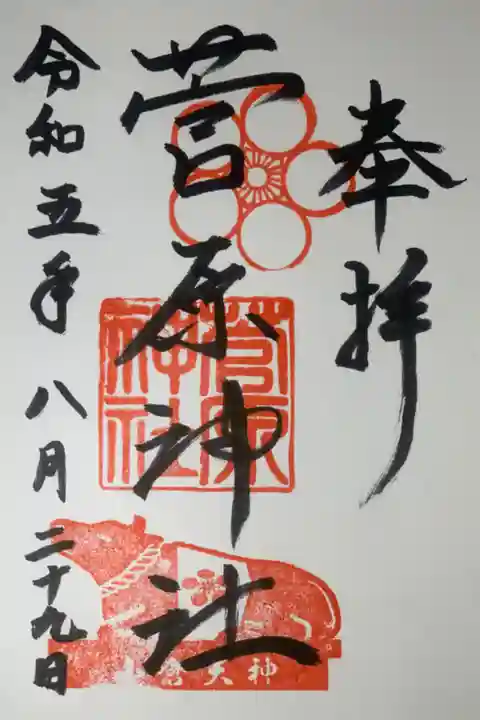 奉拝
菅原神社
菅原神社
令和五年八月二十九日